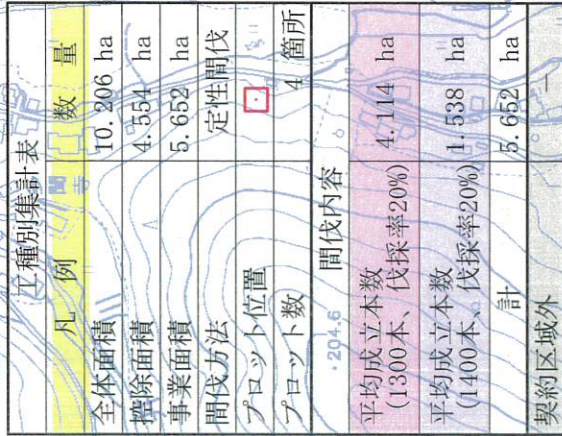 工種別集計表
凡例 数量
全体面積 10.206 ha
控除面積 4.554 ha
事業面積 5.652 ha
間伐方法 定性間伐
プロット位置
プロット数 4 箇所
間伐内容
・204.6
平均成立本数
(1300本、伐採率20%) 4.114 ha
平均成立本数
(1400本、伐採率20%) 1.538 ha
計 5.652 ha
契約区域外 —